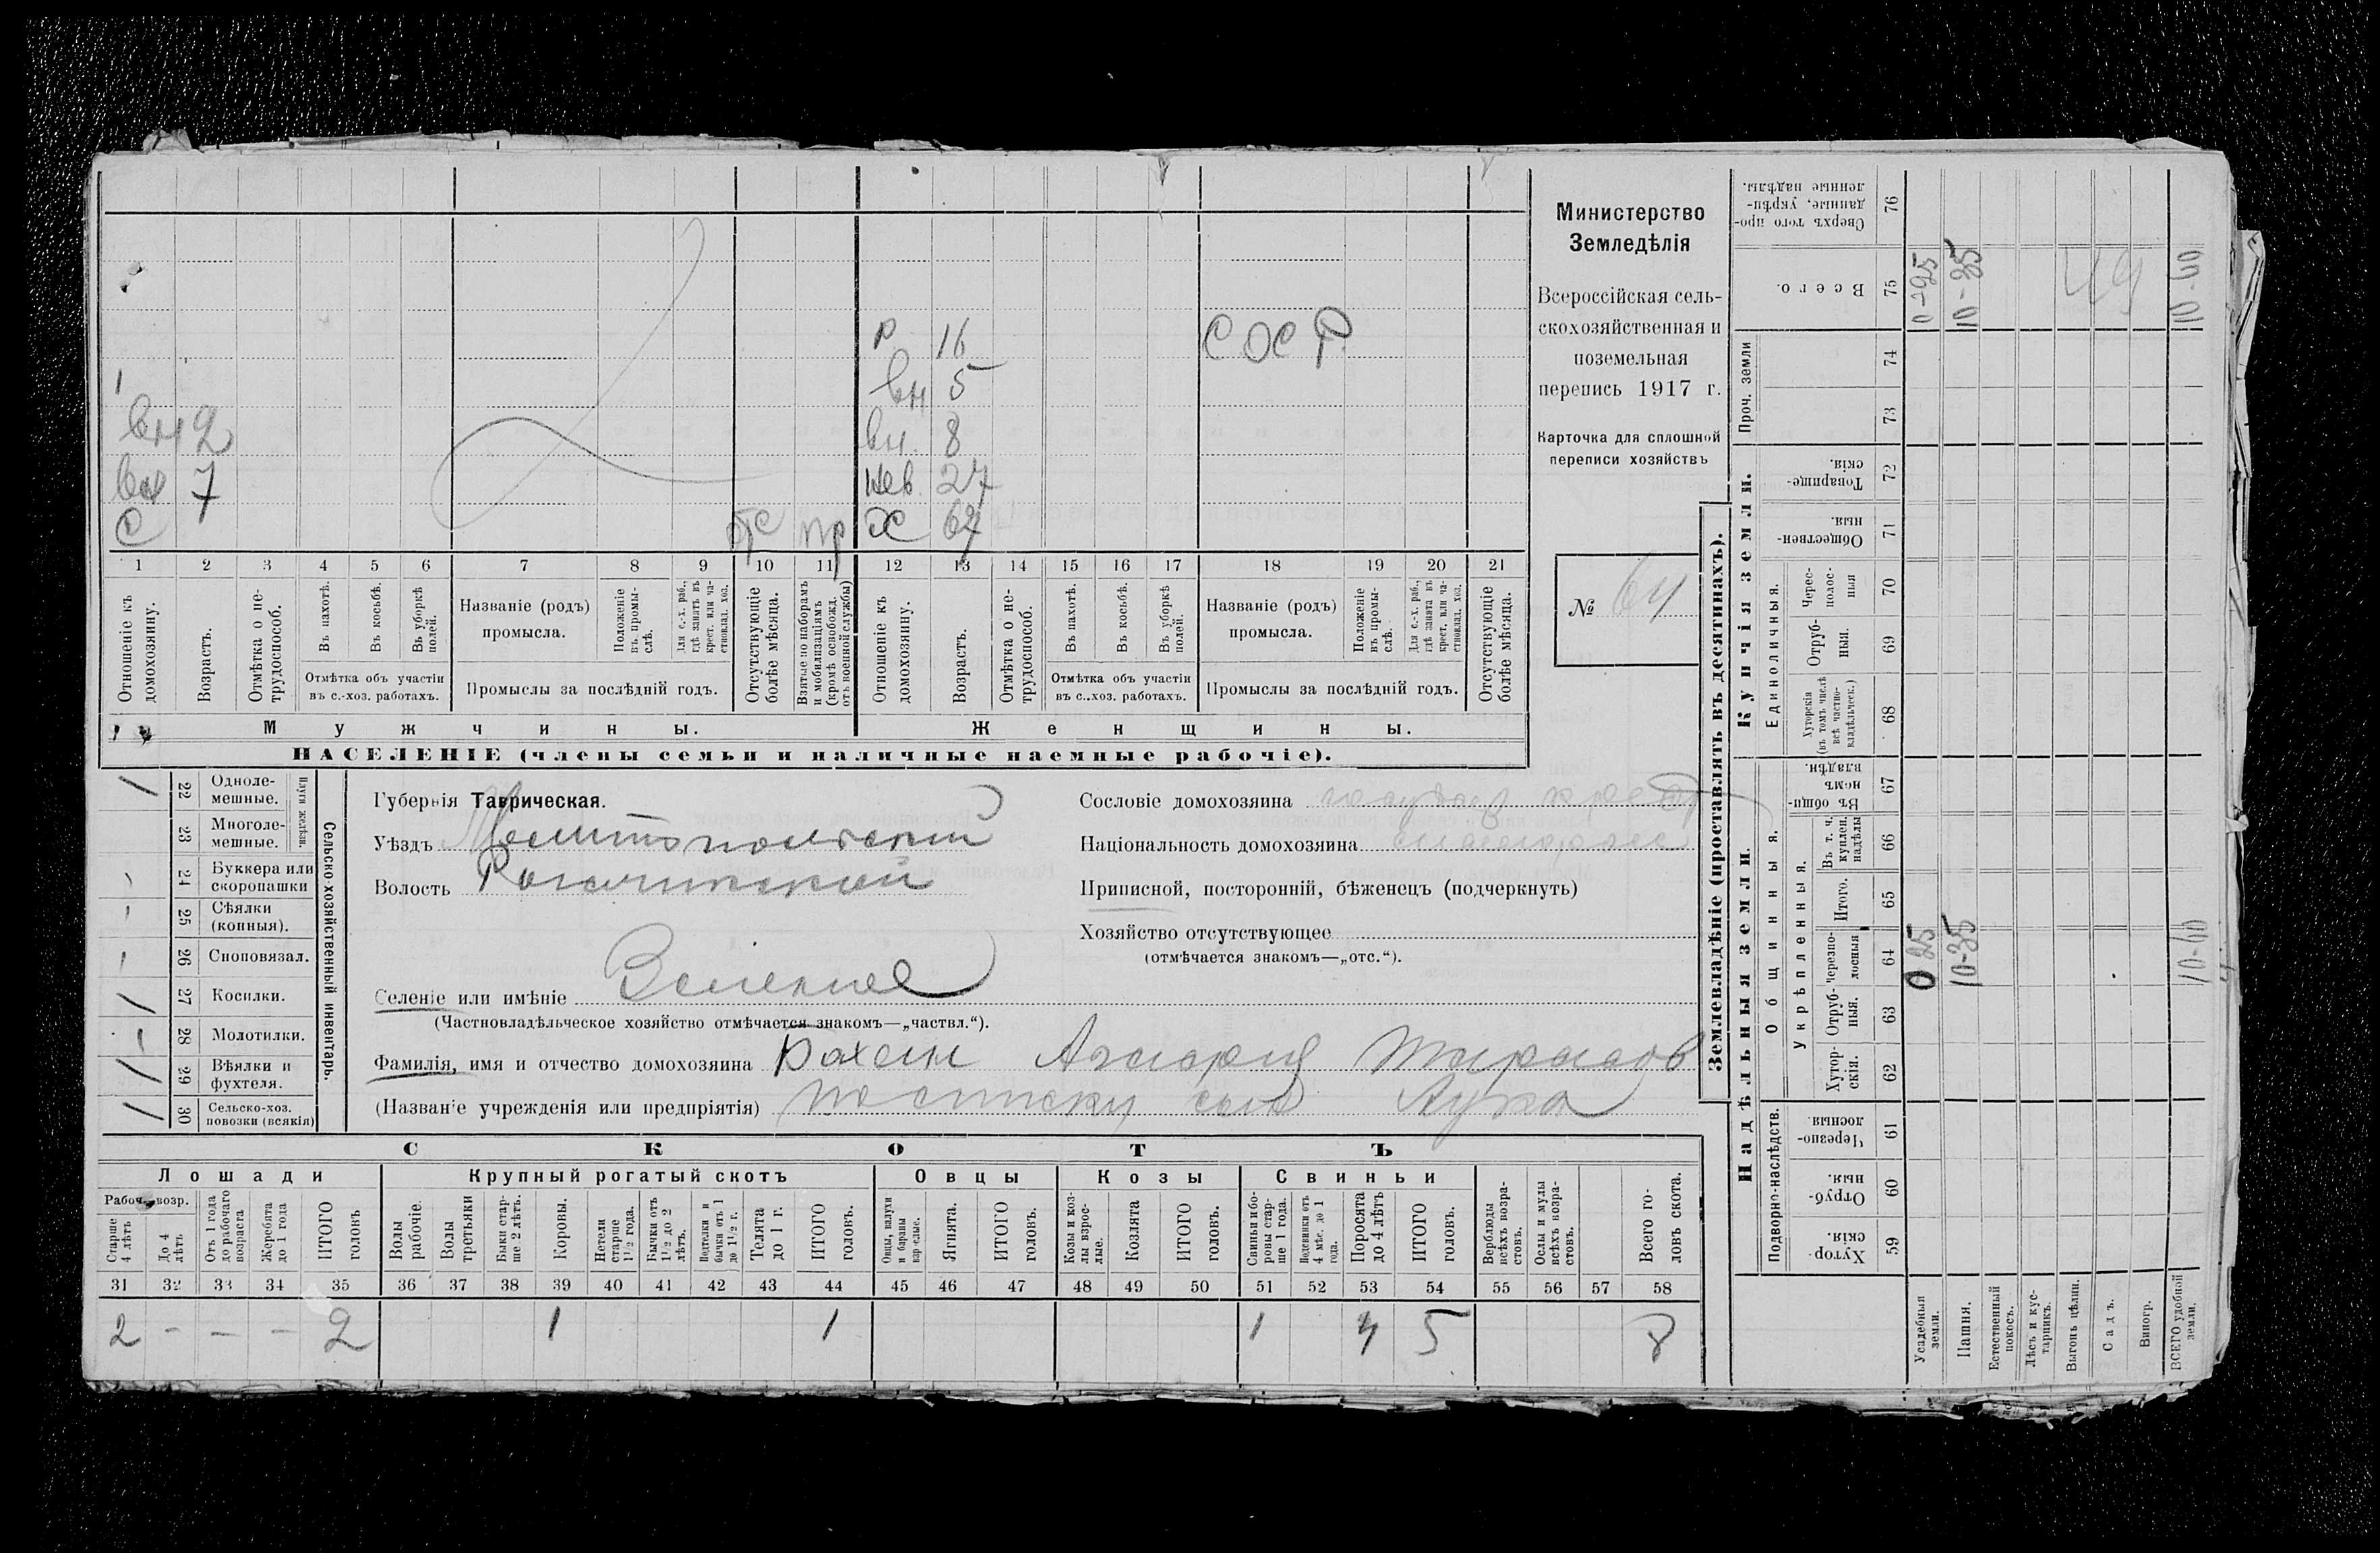 р 16 СОСР
вн 5
вн 2 вн. 8
вн 7 нев 27
С отс пр Х 67
1 2 3 4 5 6 7 8 9 10 11 12 13 14 15 16 17 18 19 20 21
Отношеніе къ домохозяину.
Возрастъ.
Отмѣтка о нетрудоспособ.
Въ пахотѣ.
Въ косьбѣ.
Въ уборкѣ полей.
Отмѣтка объ участіи въ с.-хоз. работахъ.
Названіе (родъ) промысла.
Положеніе въ промыслѣ.
Для с.-х. раб., гдѣ занятъ въ крест. или частновлад. хоз.
Промыслы за послѣдній годъ.
Отсутствующіе болѣе мѣсяца.
Взятые по наборамъ и мобилизаціямъ (кромѣ освобожд. отъ военной службы)
Отношеніе къ домохозяину.
Возрастъ.
Отмѣтка о нетрудоспособ.
Въ пахотѣ.
Въ косьбѣ.
Въ уборкѣ полей.
Отмѣтка объ участіи въ с.-хоз. работахъ.
Названіе (родъ) промысла.
Положеніе въ промыслѣ.
Для с.-х. раб., гдѣ занята въ крест. или частновлад. хоз.
Промыслы за послѣдній годъ.
Отсутствующіе болѣе мѣсяца.
Мужчины. Женщины.
НАСЕЛЕНІЕ (члены семьи и наличные наемные рабочіе).
Министерство
Земледѣлія
Всероссійская сель-
скохозяйственная и
поземельная
перепись 1917 г.
Карточка для сплошной
переписи хозяйствъ
№ 64
Сельско-хозяйственный инвентарь.
Плуги желѣзн.
/ 22 Одноле-мешные.
23 Многоле-мешные.
- 24 Буккера или скоропашки
- 25 Сѣялки (конныя).
- 26 Сноповязал.
/ 27 Косилки.
- 28 Молотилки.
/ 29 Вѣялки и фухтеля.
/ 30 Сельско-хоз. повозки (всякія)
Губернія Таврическая.
Уѣздъ Мелитопольский
Волость Рогачикской
Селеніе или имѣніе Зеленое
(Частновладѣльческое хозяйство отмѣчается знакомъ—„частвл.“).
Фамилія, имя и отчество домохозяина Бахсин Тарасов
(Названіе учрежденія или предпріятія) сын Лука
Сословіе домохозяина
Національность домохозяина малоросс
Приписной, посторонній, бѣженецъ (подчеркнуть)
Хозяйство отсутствующее
(отмѣчается знакомъ—„отс.“).
СКОТЪ
Лошади Крупный рогатый скотъ Овцы Козы Свиньи
Рабоч. возр.
Старше 4 лѣтъ
До 4 лѣтъ
Отъ 1 года до рабочаго возраста
Жеребята до 1 года
ИТОГО головъ
Волы рабочіе.
Волы третьяки
Быки старше 2 лѣтъ.
Коровы.
Нетели старше 1½ года.
Бычки отъ 1½ до 2 лѣтъ.
Подтелки и бычки отъ 1 до 1½ г.
Телята до 1 г.
ИТОГО головъ.
Овцы, валухи и бараны взрослые.
Ягнята.
ИТОГО головъ.
Козы и козлы взрослые.
Козлята
ИТОГО головъ.
Свиньи и боровы старше 1 года.
Подсвинки отъ 4 мѣс. до 1 года.
Поросята до 4 лѣтъ
ИТОГО головъ.
Верблюды всѣхъ возрастовъ.
Ослы и мулы всѣхъ возрастовъ.
Всего головъ скота.
31 32 33 34 35 36 37 38 39 40 41 42 43 44 45 46 47 48 49 50 51 52 53 54 55 56 57 58
2 - - - 2 1 1 1 4 5 8
Землевладѣніе (проставлять въ десятинахъ).
Надѣльныя земли. Купчія земли.
Подворно-наслѣдств.
Общинныя.
Укрѣпленныя.
Единоличныя.
Проч. земли
Хуторскія. 59
Отрубныя. 60
Черезполосныя 61
Хуторскія. 62
Отрубныя. 63
Черезполосныя 64
Итого. 65
Въ т. ч. куплен. надѣлы 66
Въ общинномъ владѣн. 67
Хуторскія (въ томъ числѣ всѣ частновладѣльческ.) 68
Отрубныя. 69
Чересполосныя 70
Общественныя. 71
Товарищескія. 72
73
74
Всего. 75
Сверхъ того проданные, укрѣпленные надѣлы. 76
Усадебныя земли. 0 25 0-25
Пашня. 10-35 10-35
Естественный покосъ.
Лѣсъ и кустарникъ.
Выгонъ цѣлин.
Садъ.
Виногр.
ВСЕГО удобной земли. 10-60 10-60